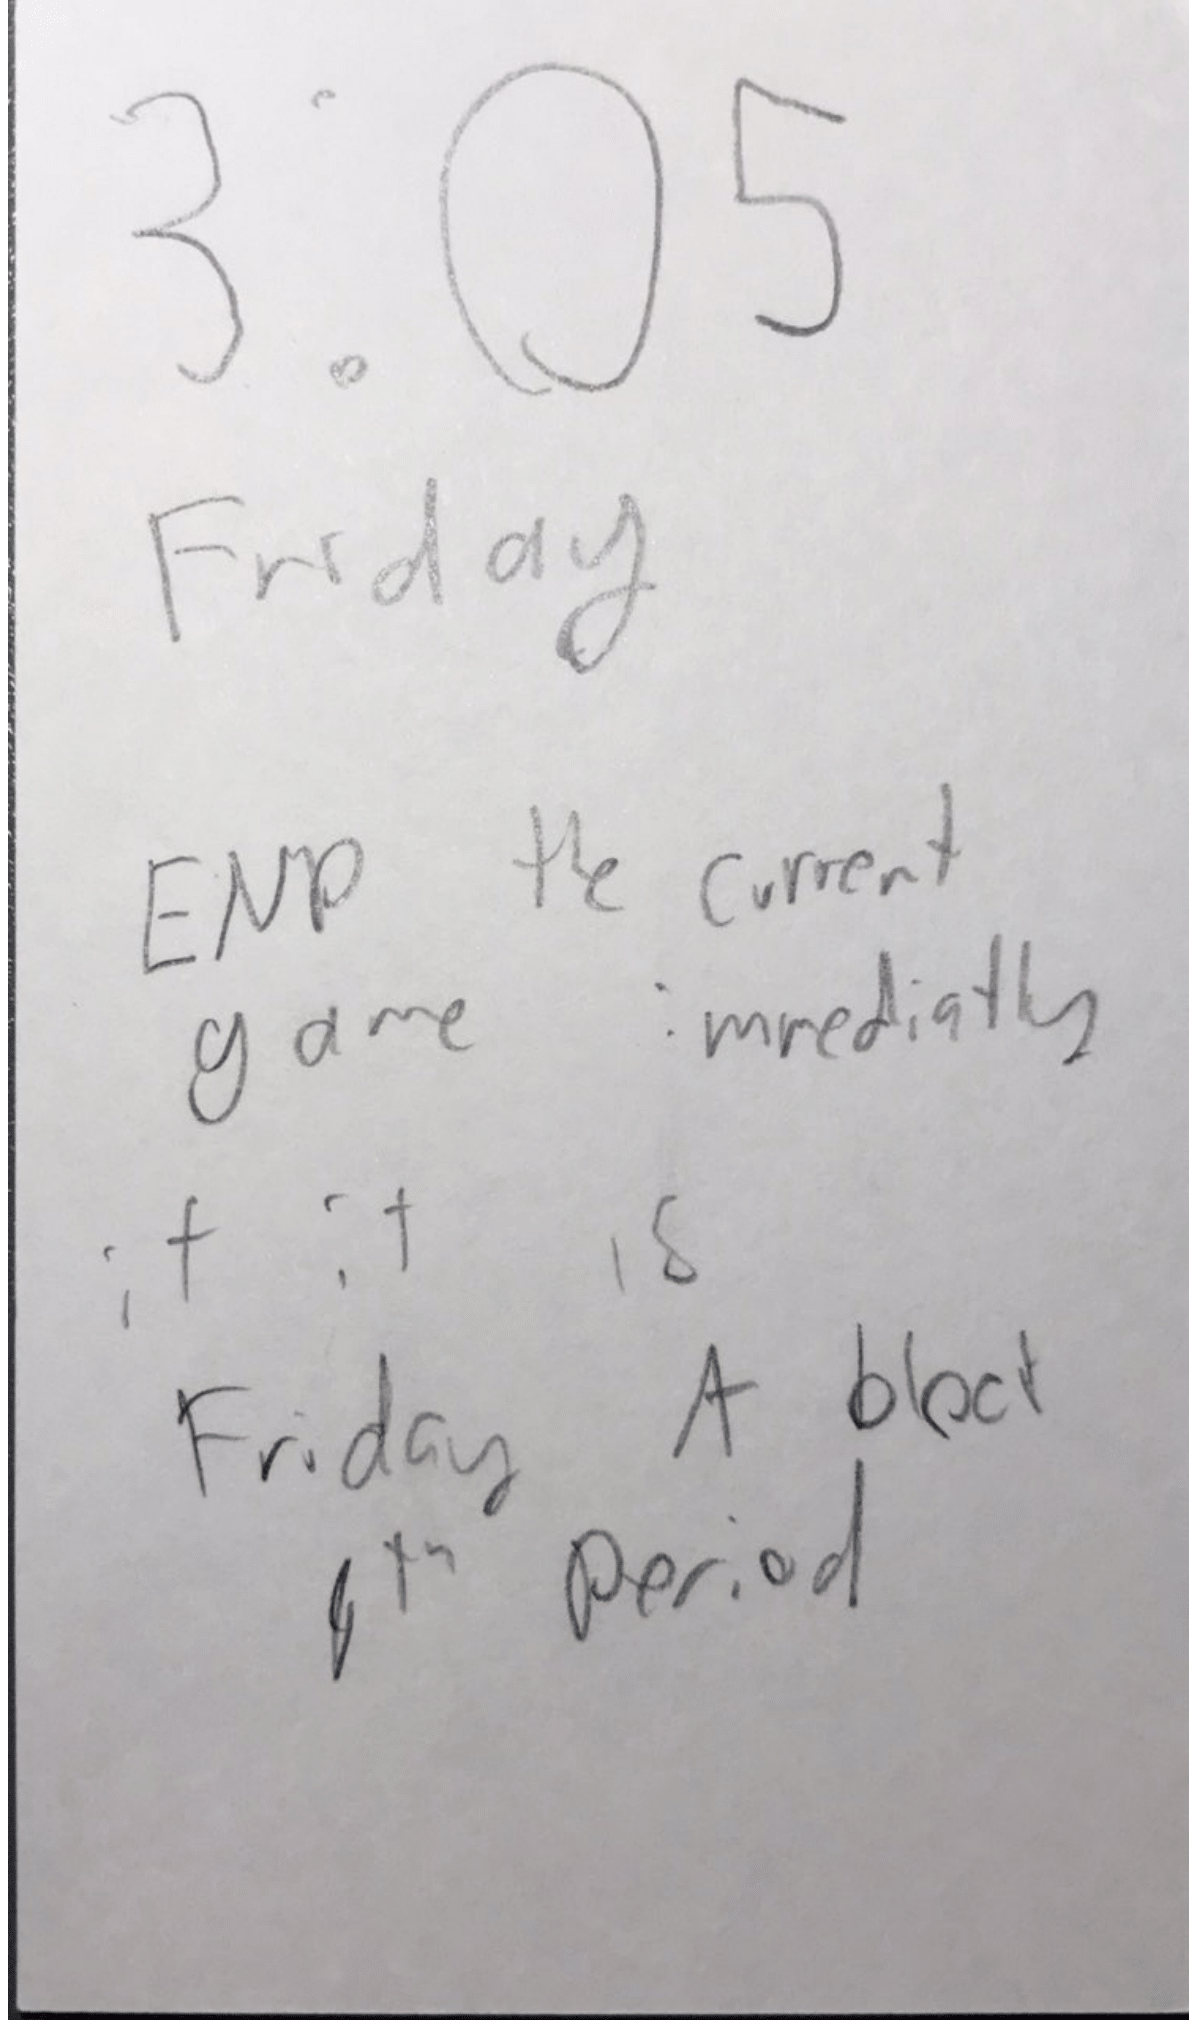 3:05
Friday
END the current
game immediatly
if it is
Friday A block
4th period